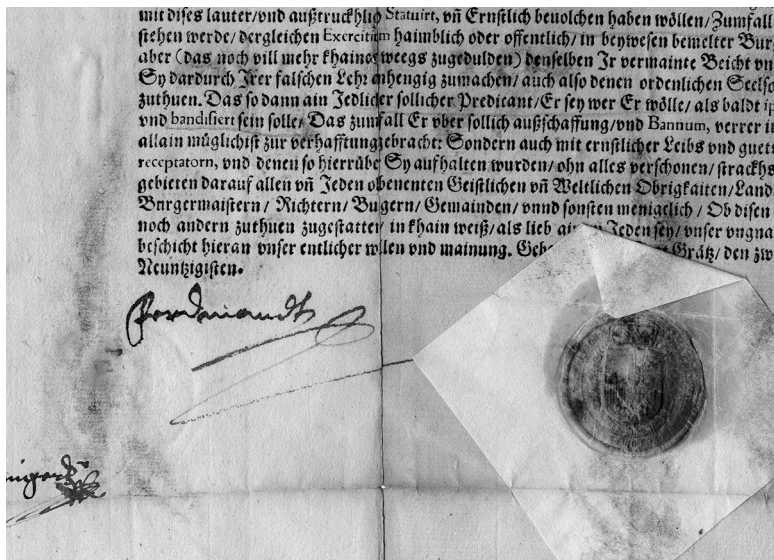 mit dises lauter/vnd außtruckhlich Statuirt, vñ Ernstlich beuolchen haben wöllen/Zumfall
stehen werde/dergleichen Exercitium haimblich oder offentlich/in beywesen bemelter Bur
aber (das noch vill mehr khaines weegs zugedulden) denselben Jr vermainte Beicht vn
Sy dardurch Jrer falschen Lehr anhengig zumachen/auch also denen ordenlichen Seelso
zuthuen. Das so dann ain Jedlicher sollicher Predicant/Er sey wer Er wölle/als baldt ip
vnd bandisiert sein solle/Das zumfall Er vber sollich außschaffung/vnd Bannum, verrer in
allain müglichist zur verhafftung gebracht: Sondern auch mit ernstlicher Leibs vnd guets
receptatorn, vnd denen so hierrüber Sy aufhalten wurden/ohn alles verschonen/strackhs
gebieten darauf allen vñ Jeden obenenten Geistlichen vñ Weltlichen Obrigkaiten/Land
Burgermaistern/Richtern/Bugern/Gemainden/vnnd sonsten menigelich/Ob disen
noch andern zuthuen zugestatten/in khain weiß/als lieb Jeden sey/vnser vngna
beschicht hieran vnser entlicher willen vnd mainung. Grätz/den zw
Neuntzigisten.
Ferdinandt